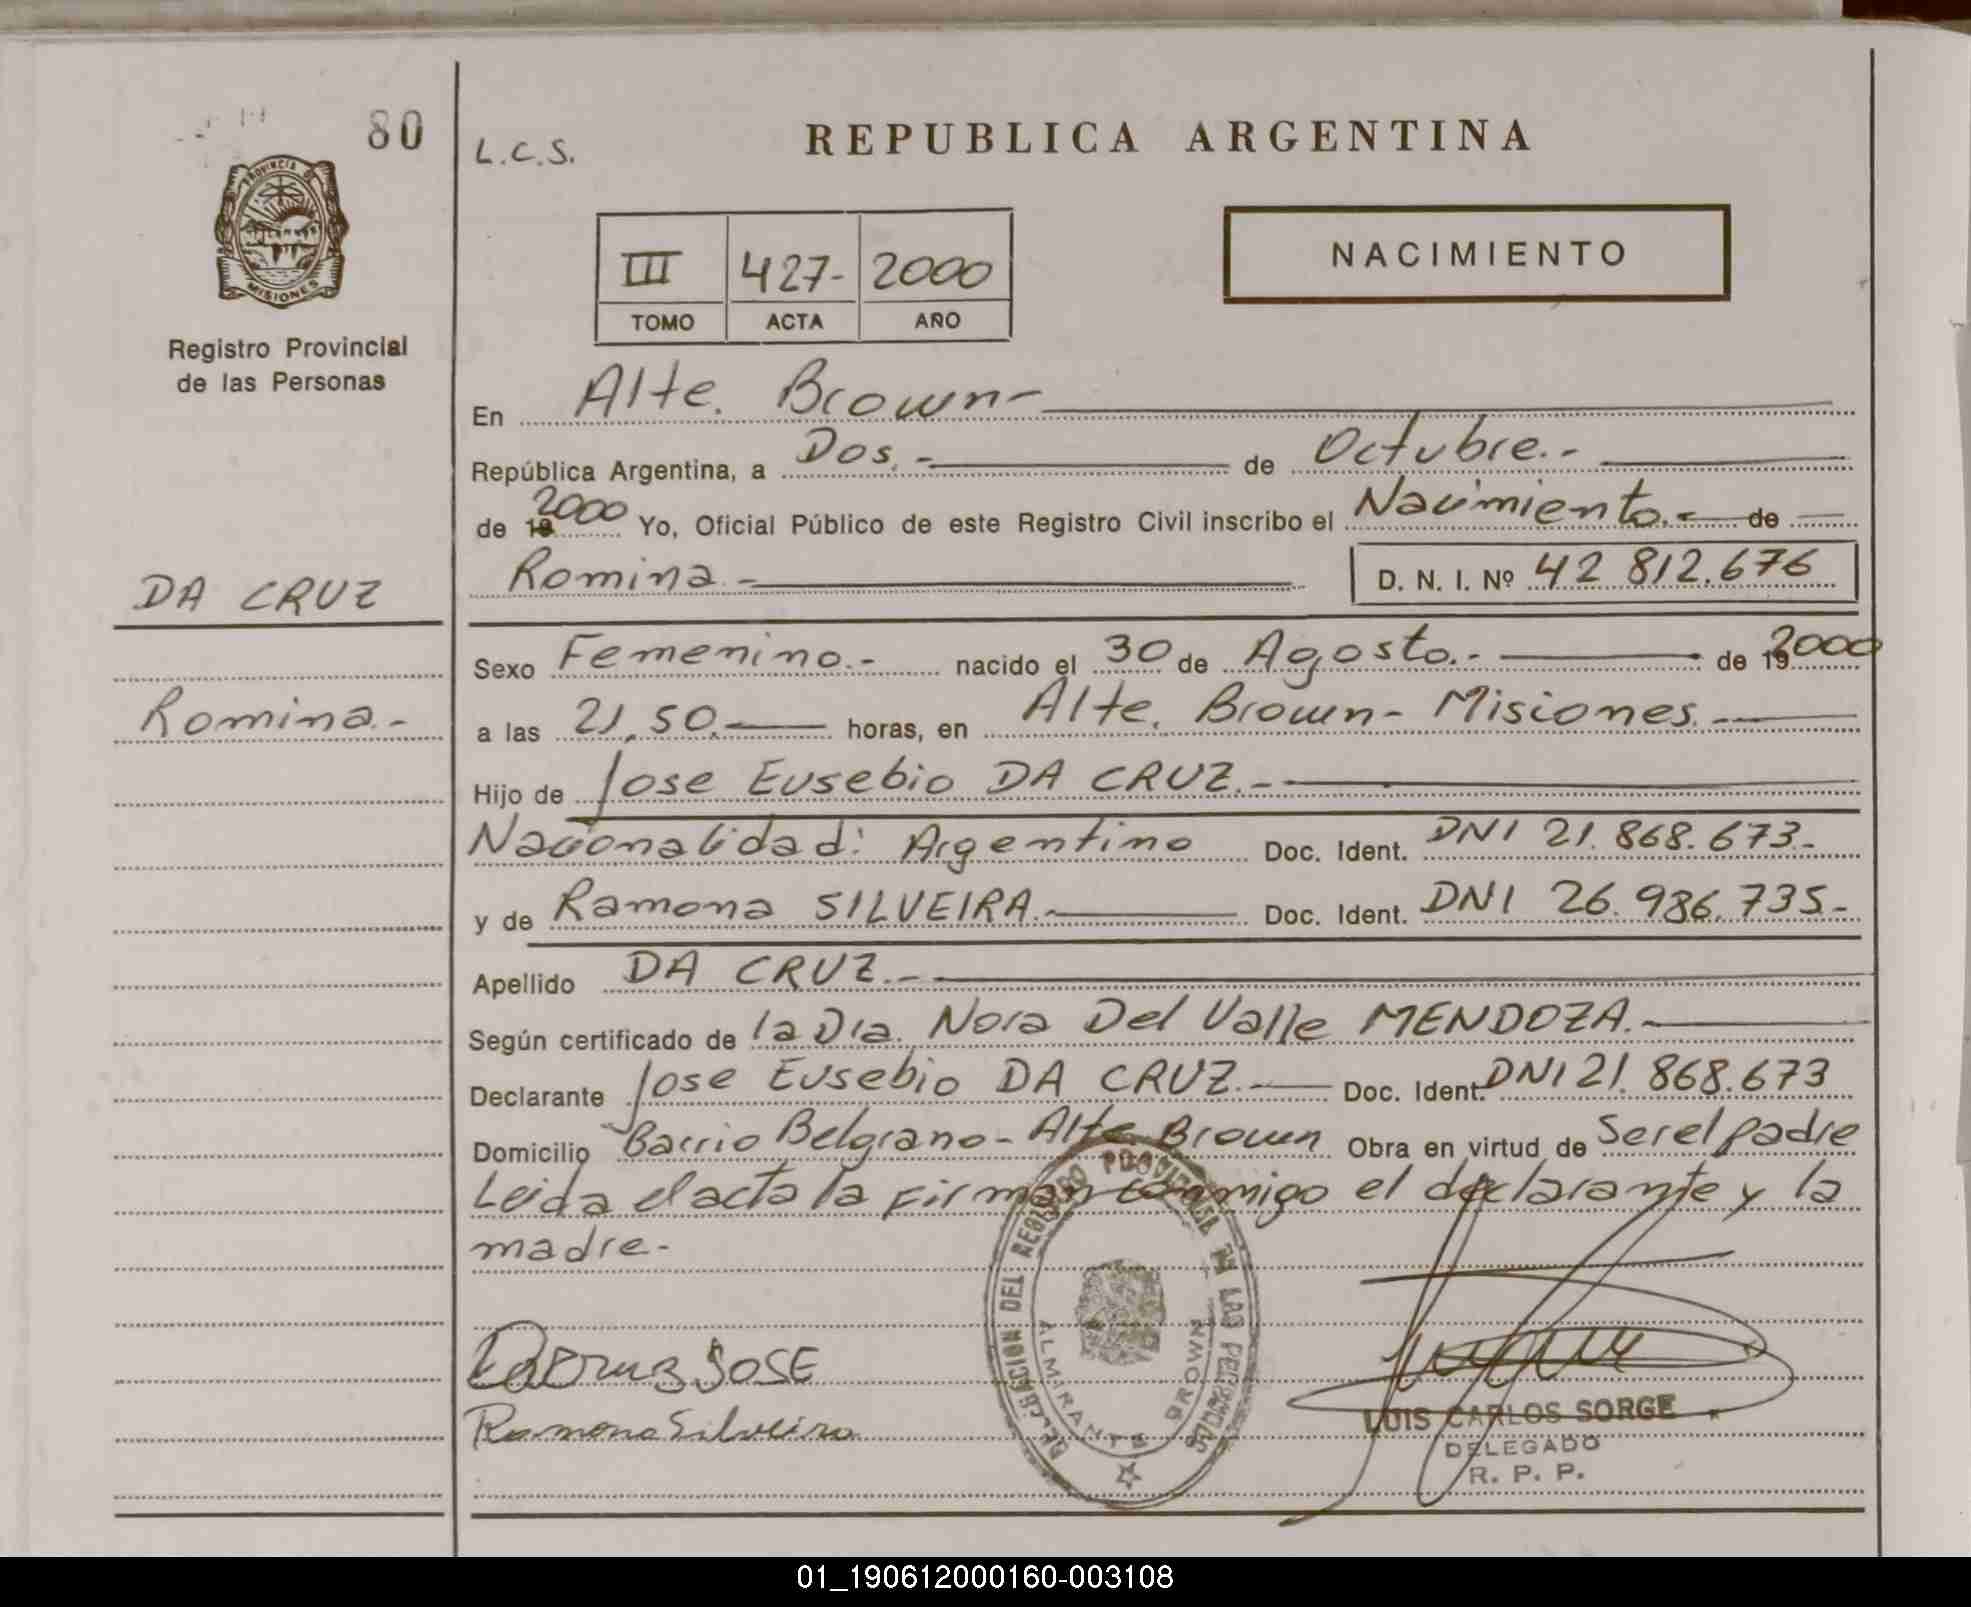 80
L.C.S.
REPUBLICA ARGENTINA
PROVINCIA DE
MISIONES
Registro Provincial
de las Personas
III 427- 2000
TOMO ACTA AÑO
NACIMIENTO
En Alte. Brown-
República Argentina, a Dos.- de Octubre.-
de 19 2000 Yo, Oficial Público de este Registro Civil inscribo el Nacimiento.- de
Romina.- D. N. I. Nº 42 812.676
DA CRUZ
Romina.-
Sexo Femenino.- nacido el 30 de Agosto.- de 19 2000
a las 21,50.- horas, en Alte. Brown- Misiones.-
Hijo de Jose Eusebio DA CRUZ.-
Nacionalidad: Argentino Doc. Ident. DNI 21.868.673.-
y de Ramona SILVEIRA.- Doc. Ident. DNI 26.986.735-
Apellido DA CRUZ.-
Según certificado de la Dra. Nora Del Valle MENDOZA.-
Declarante Jose Eusebio DA CRUZ.- Doc. Ident. DNI 21.868.673
Domicilio Barrio Belgrano- Alte Brown Obra en virtud de Ser el padre
Leida el acta la firman conmigo el declarante y la
madre-
DELEGACION DEL REGISTRO PROVINCIAL DE LAS PERSONAS
ALMIRANTE BROWN
Da Cruz JOSE
Ramona Silveira
LUIS CARLOS SORGE
DELEGADO
R. P. P.
01_190612000160-003108